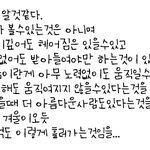 알것같다.
가 볼수있는것은 아니며
깊어도 헤어짐은 있을수있고
없어도 받아들여야만 하는것이 있
이란게 아무 노력없이도 움직일수
해도 움직여지지 않을수있다는것을
을때 더 아름다운사람도있다는것을
겨울이오듯
도 이렇게 흘러가는것임을...